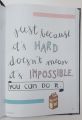 just because
it's HARD
doesn't mean
it's IMPOSSIBLE.
you can do it.